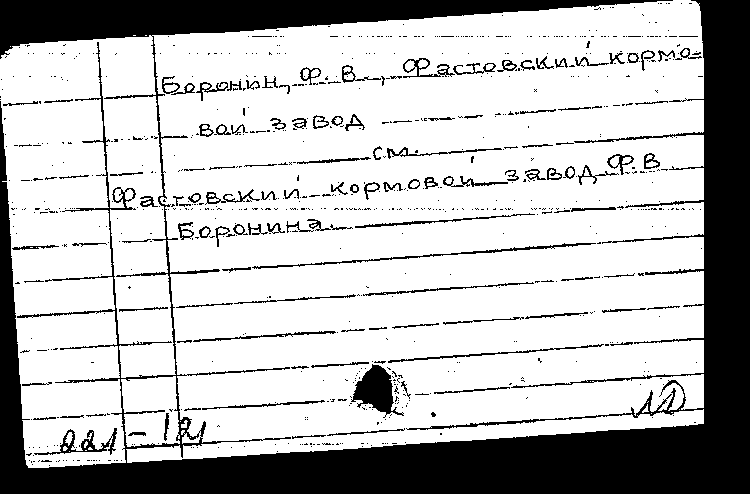 Боронин, Ф. В., Фастовский кормо-
вой завод
см.
Фастовский кормовой завод Ф. В.
Боронина.
221-121